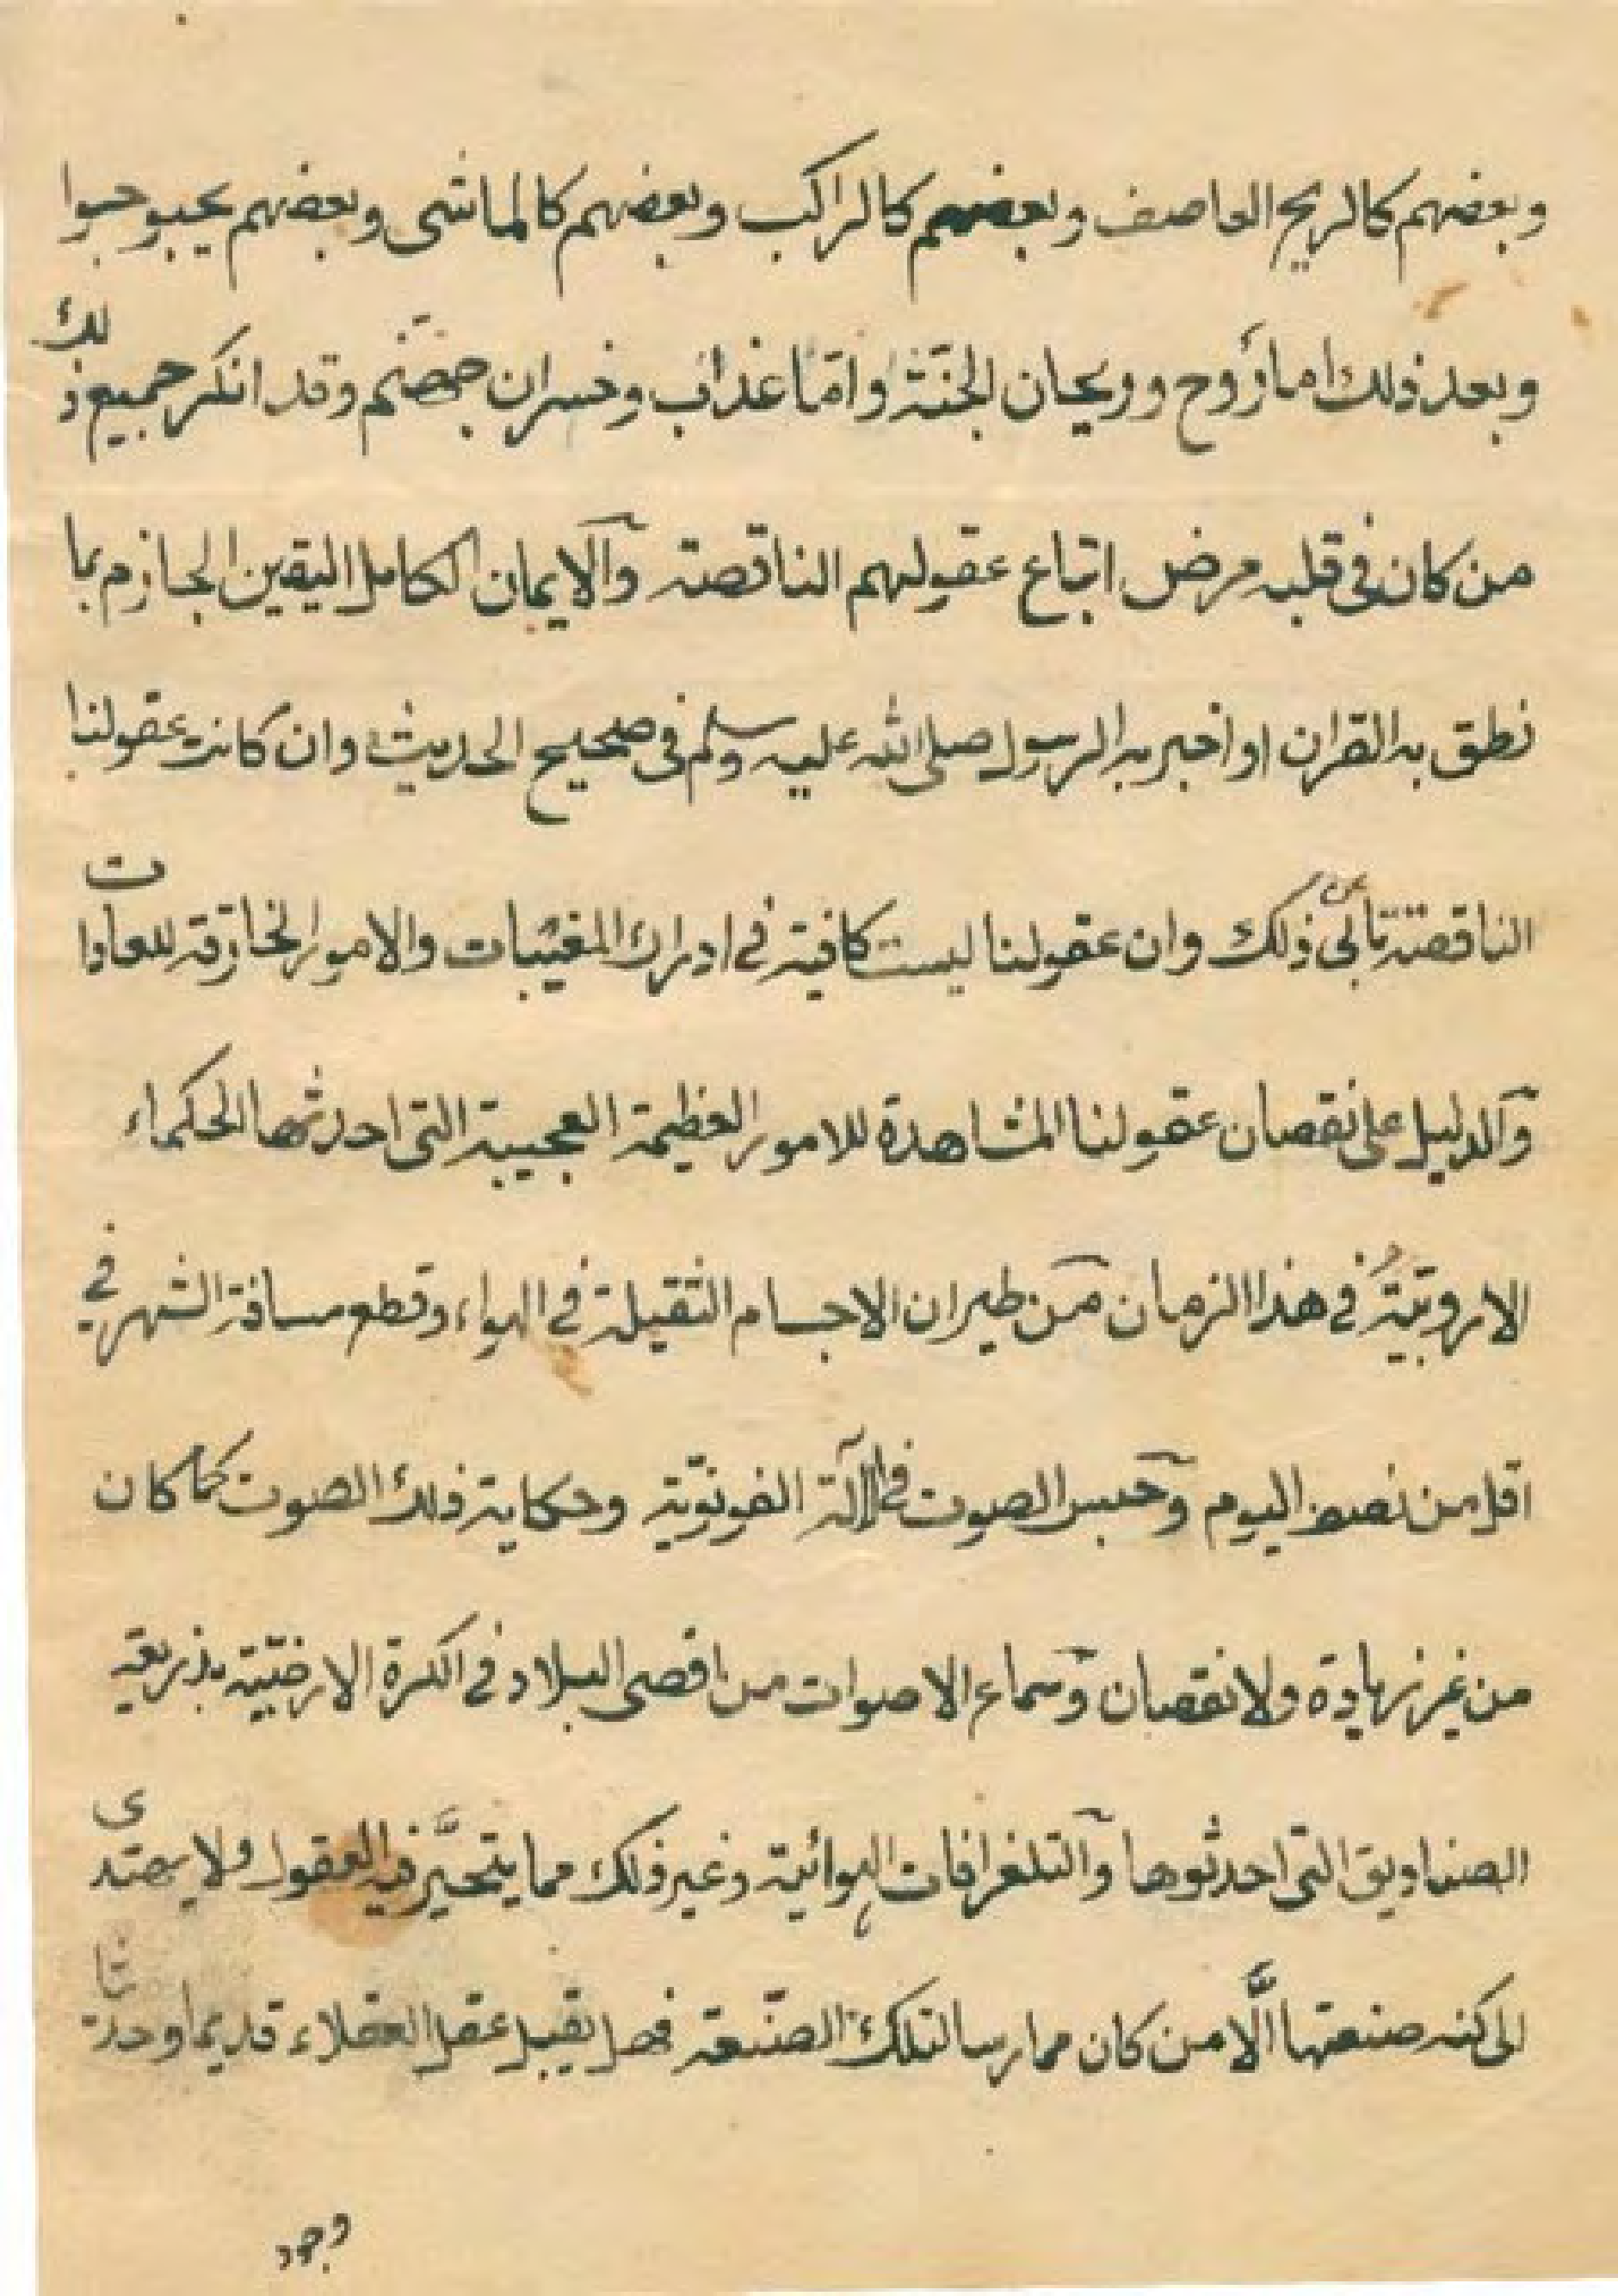 وبعضهم كالريح العاصف وبعضهم كالراكب وبعضهم كالماشى وبعضهم يحبو حبوا
وبعد ذلك اما رَوح وريحان الجنّة او امّا عذاب وخسران جهنّم وقد انكر جميع ذلك
من كان فى قلبه مرض اتباع عقولهم الناقصة والايمان الكامل اليقين الجازم بما
نطق به القران او اخبر به الرسول صلى الله عليه وسلم فى صحيح الحديث وان كانت عقولنا
الناقصة تأبى عن ذلك وان عقولنا ليست كافية فى ادراك المغيّبات والامور الخارقة للعادات
والدليل على نقصان عقولنا المشاهدة للامور العظيمة العجيبة التى احدثها الحكماء
الاروبيّةُ فى هذا الزمان من طيران الاجسام الثقيلة فى الهواء وقطع مسافة الشهر في
اقل من نصف اليوم وحبس الصوت فى الآلة الفونوية وحكاية ذلك الصوت كما كان
من غير زيادة ولا نقصان وسماع الاصوات من اقصى البلاد فى الكرة الارضيّة بذريعة
الصناديق التى احدثوها والتلغرافات الهوائية وغير ذلك مما يتحيَّر فيه العقول ولا يهتدى
الى كنه صنعتها الَّا من كان ممارسا لتلك الصّنعة فهل يقبل عقل العقلاء قديما وحدثا
وجود